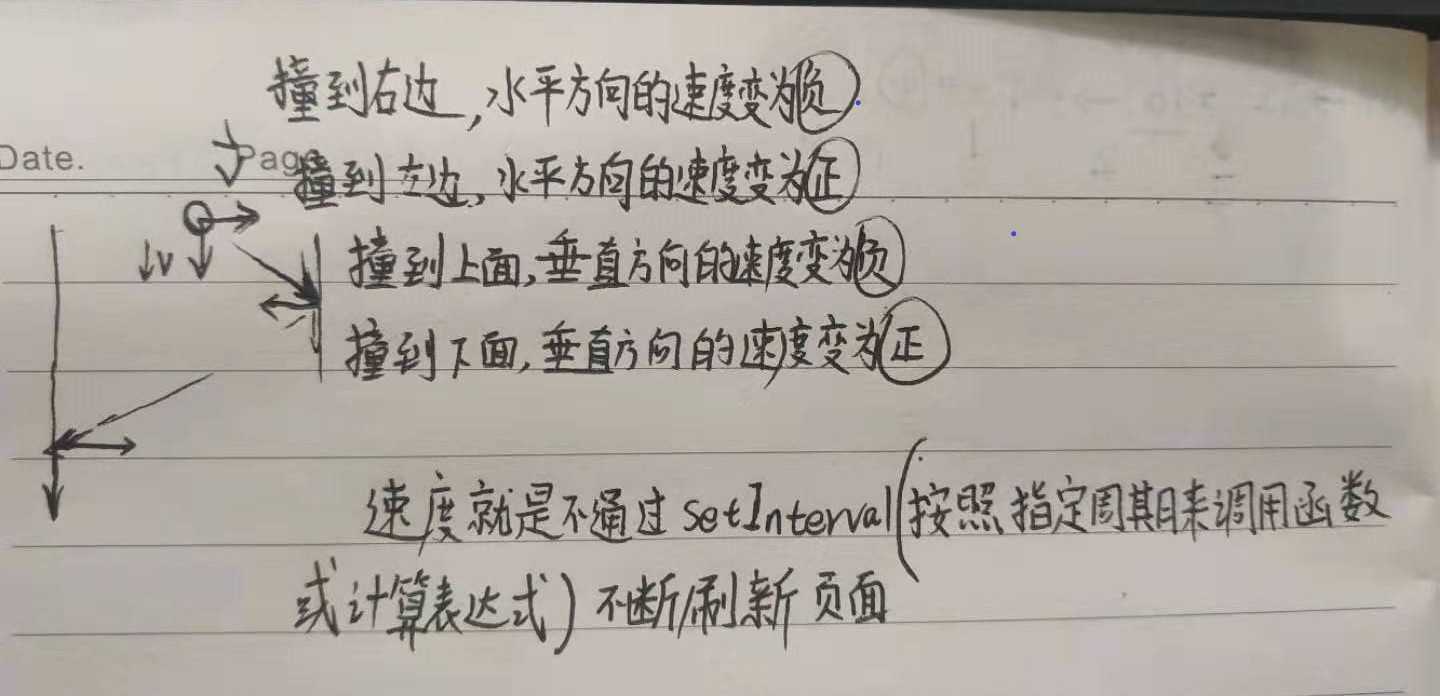 撞到右边,水平方向的速度变为负
Date.
Pag
撞到左边,水平方向的速度变为正
↓v
撞到上面,垂直方向的速度变为负
撞到下面,垂直方向的速度变为正
速度就是不通过setInterval(按照指定周期来调用函数
或计算表达式)不断刷新页面